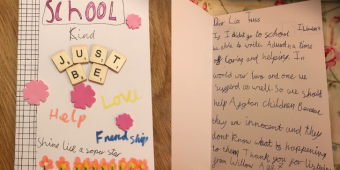 SCHOOL
Kind
JUST
BE
Love
Help
Friendship
Shine like a super star
Dear Liz
If I did go to school I
be able to write. Adustin a time
of Caring and helping. In
world war two and one we
support as well. So we should
help Children Because
they are innocent and they
dont know what to happening
to them. Thank you for listening
from Willow Age